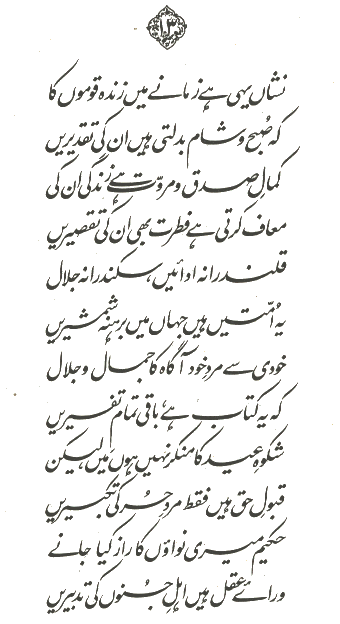 ۱۳
نشاں یہی ہے زمانے میں زندہ قوموں کا
کہ صُبح و شام بدلتی ہیں ان کی تقدیریں
کمالِ صدق و مروّت ہے زندگی ان کی
معاف کرتی ہے فطرت بھی ان کی تقصیریں
قلندرانہ ادائیں، سکندرانہ جلال
یہ اُمّتیں ہیں جہاں میں برہنہ شمشیریں
خودی سے مردِ خود آگاہ کا جمال و جلال
کہ یہ کتاب ہے باقی تمام تفسیریں
شکوہِ عید کا منکر نہیں ہوں میں لیکن
قبولِ حق ہیں فقط مردِ حُر کی تکبیریں
حکیم میری نواؤں کا راز کیا جانے
ورائے عقل ہیں اہلِ جنوں کی تدبیریں